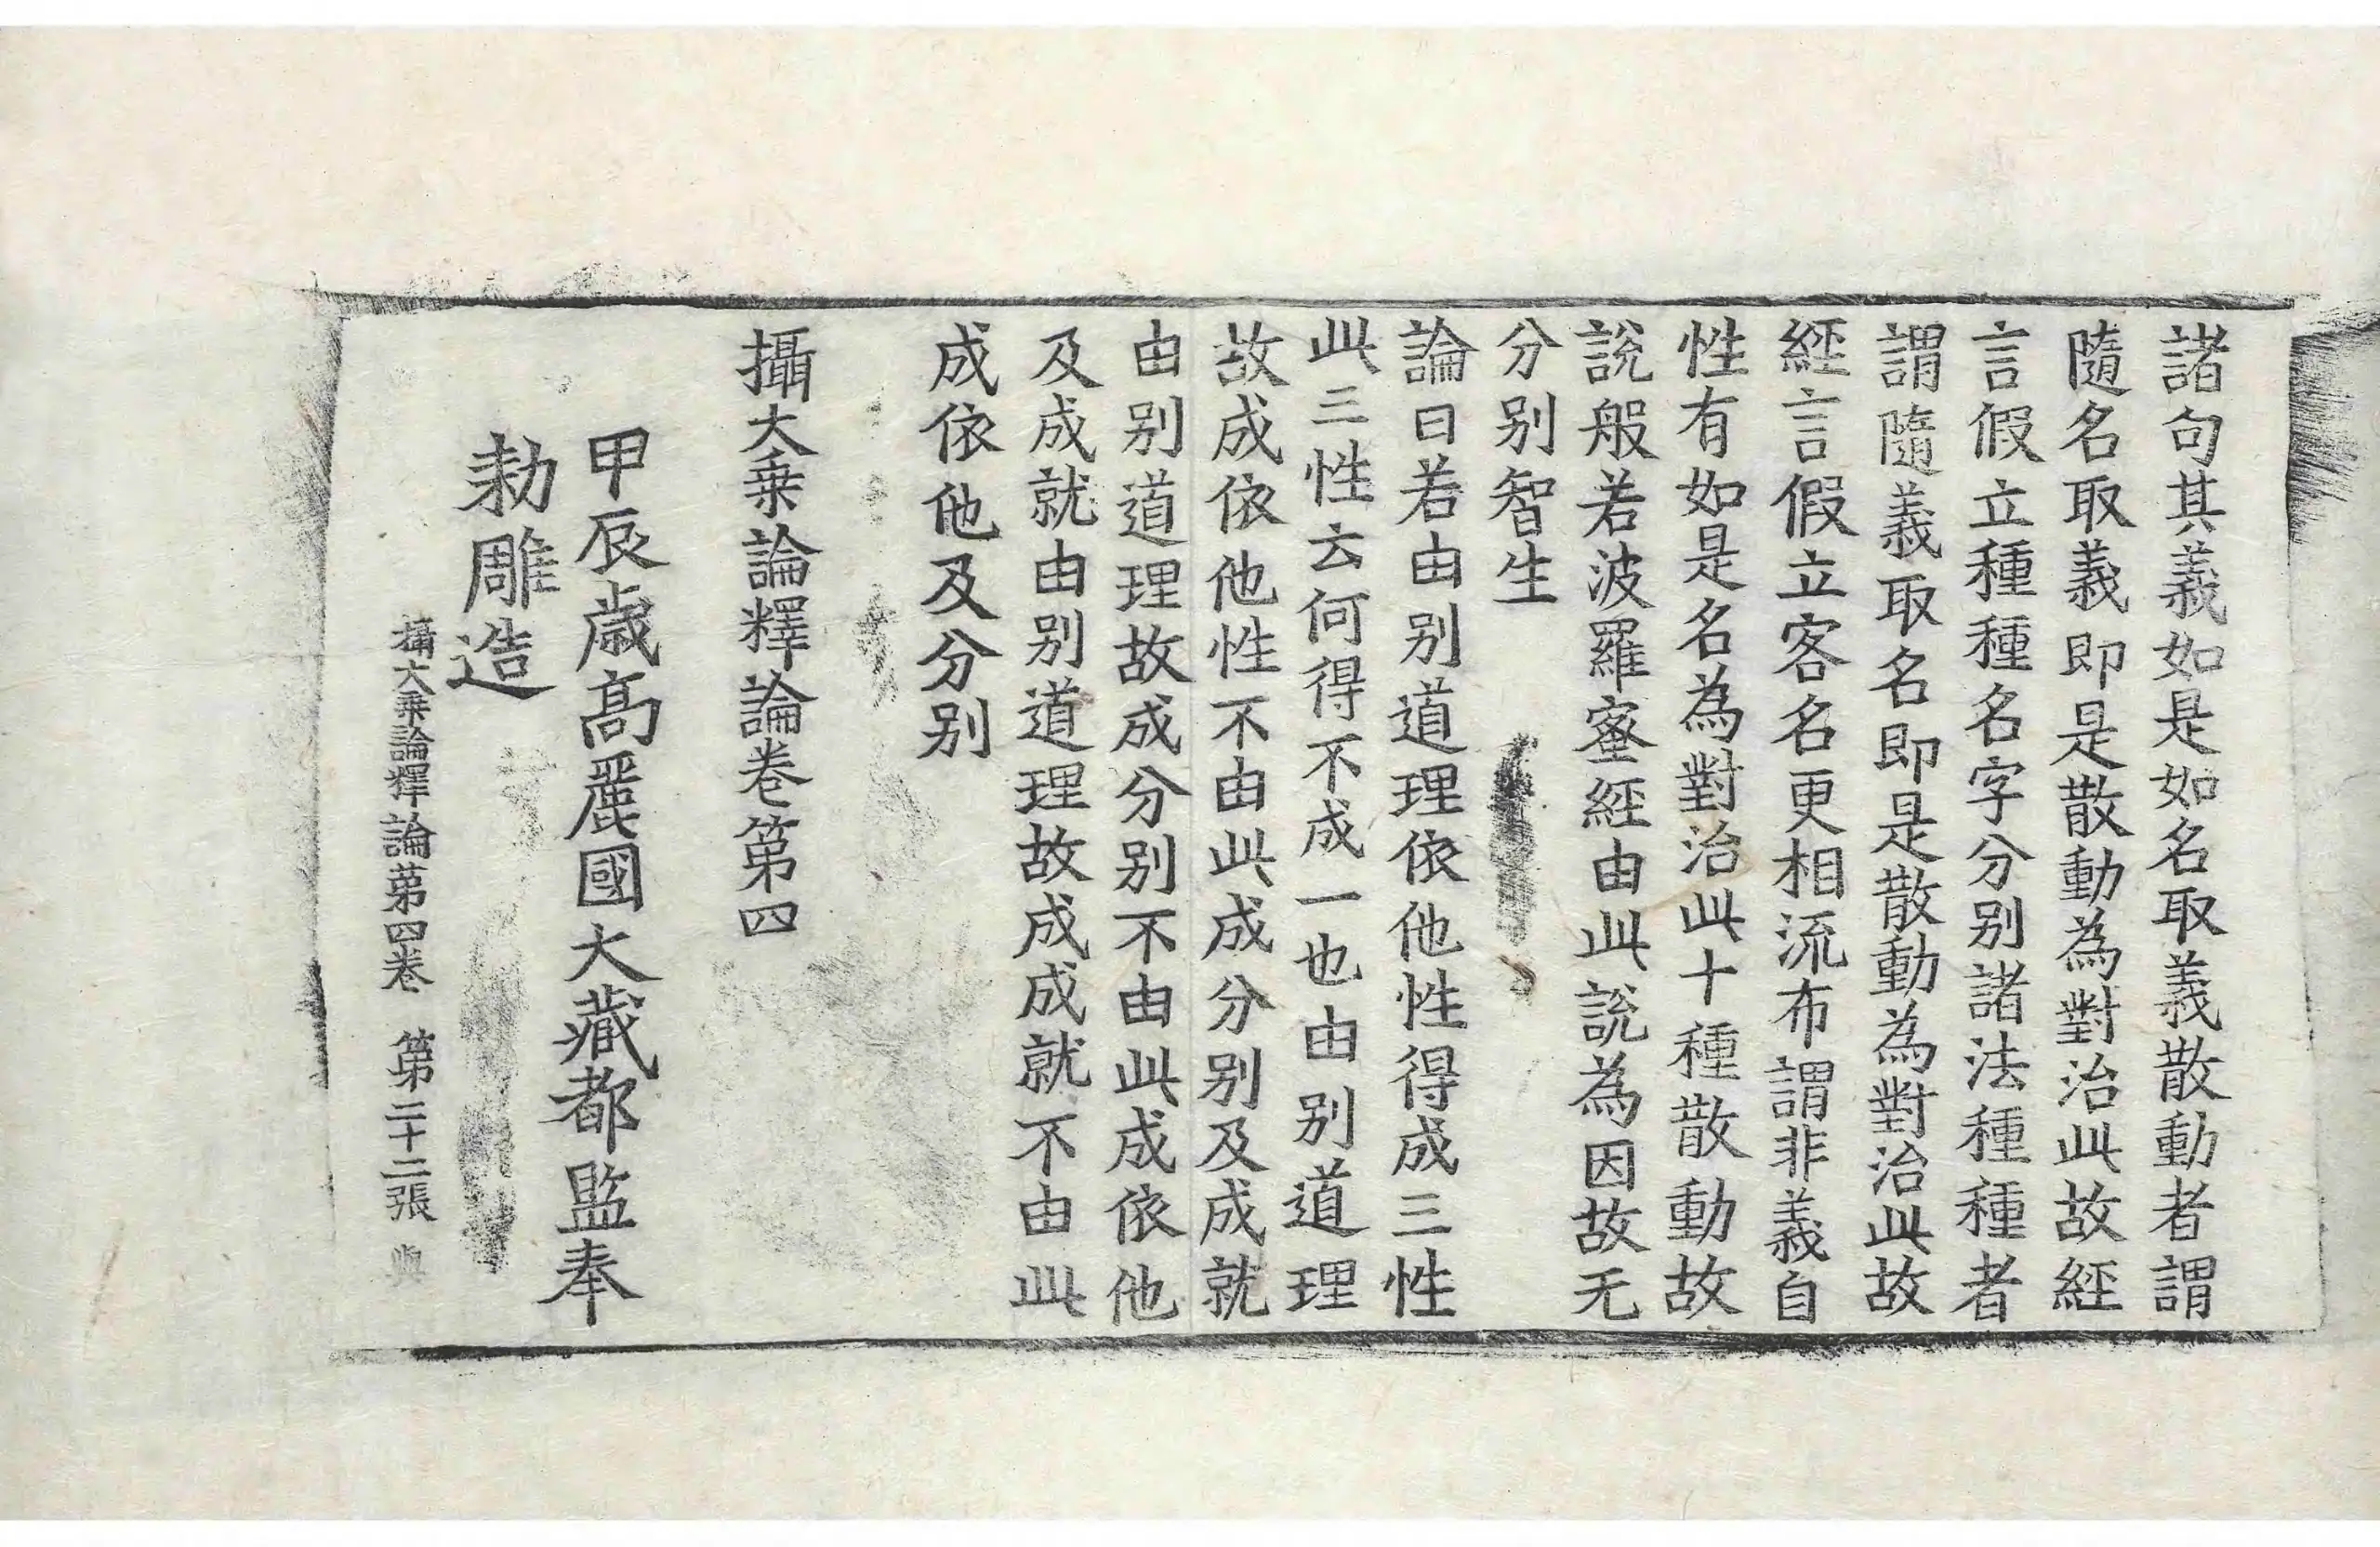 諸句其義如是如名取義散動者謂
隨名取義即是散動為對治此故經
言假立種種名字分别諸法種種者
謂隨義取名即是散動為對治此故
經言假立客名更相流布謂非義自
性有如是名為對治此十種散動故
説般若波羅蜜經由此説為因故无
分别智生
論曰若由别道理依他性得成三性
此三性云何得不成一也由别道理
故成依他性不由此成分别及成就
由别道理故成分别不由此成依他
及成就由别道理故成成就不由此
成依他及分别
攝大乗論釋論卷第四
甲辰歳髙麗國大藏都監奉
勑雕造
攝大乗論釋論第四卷 第二十二張 與